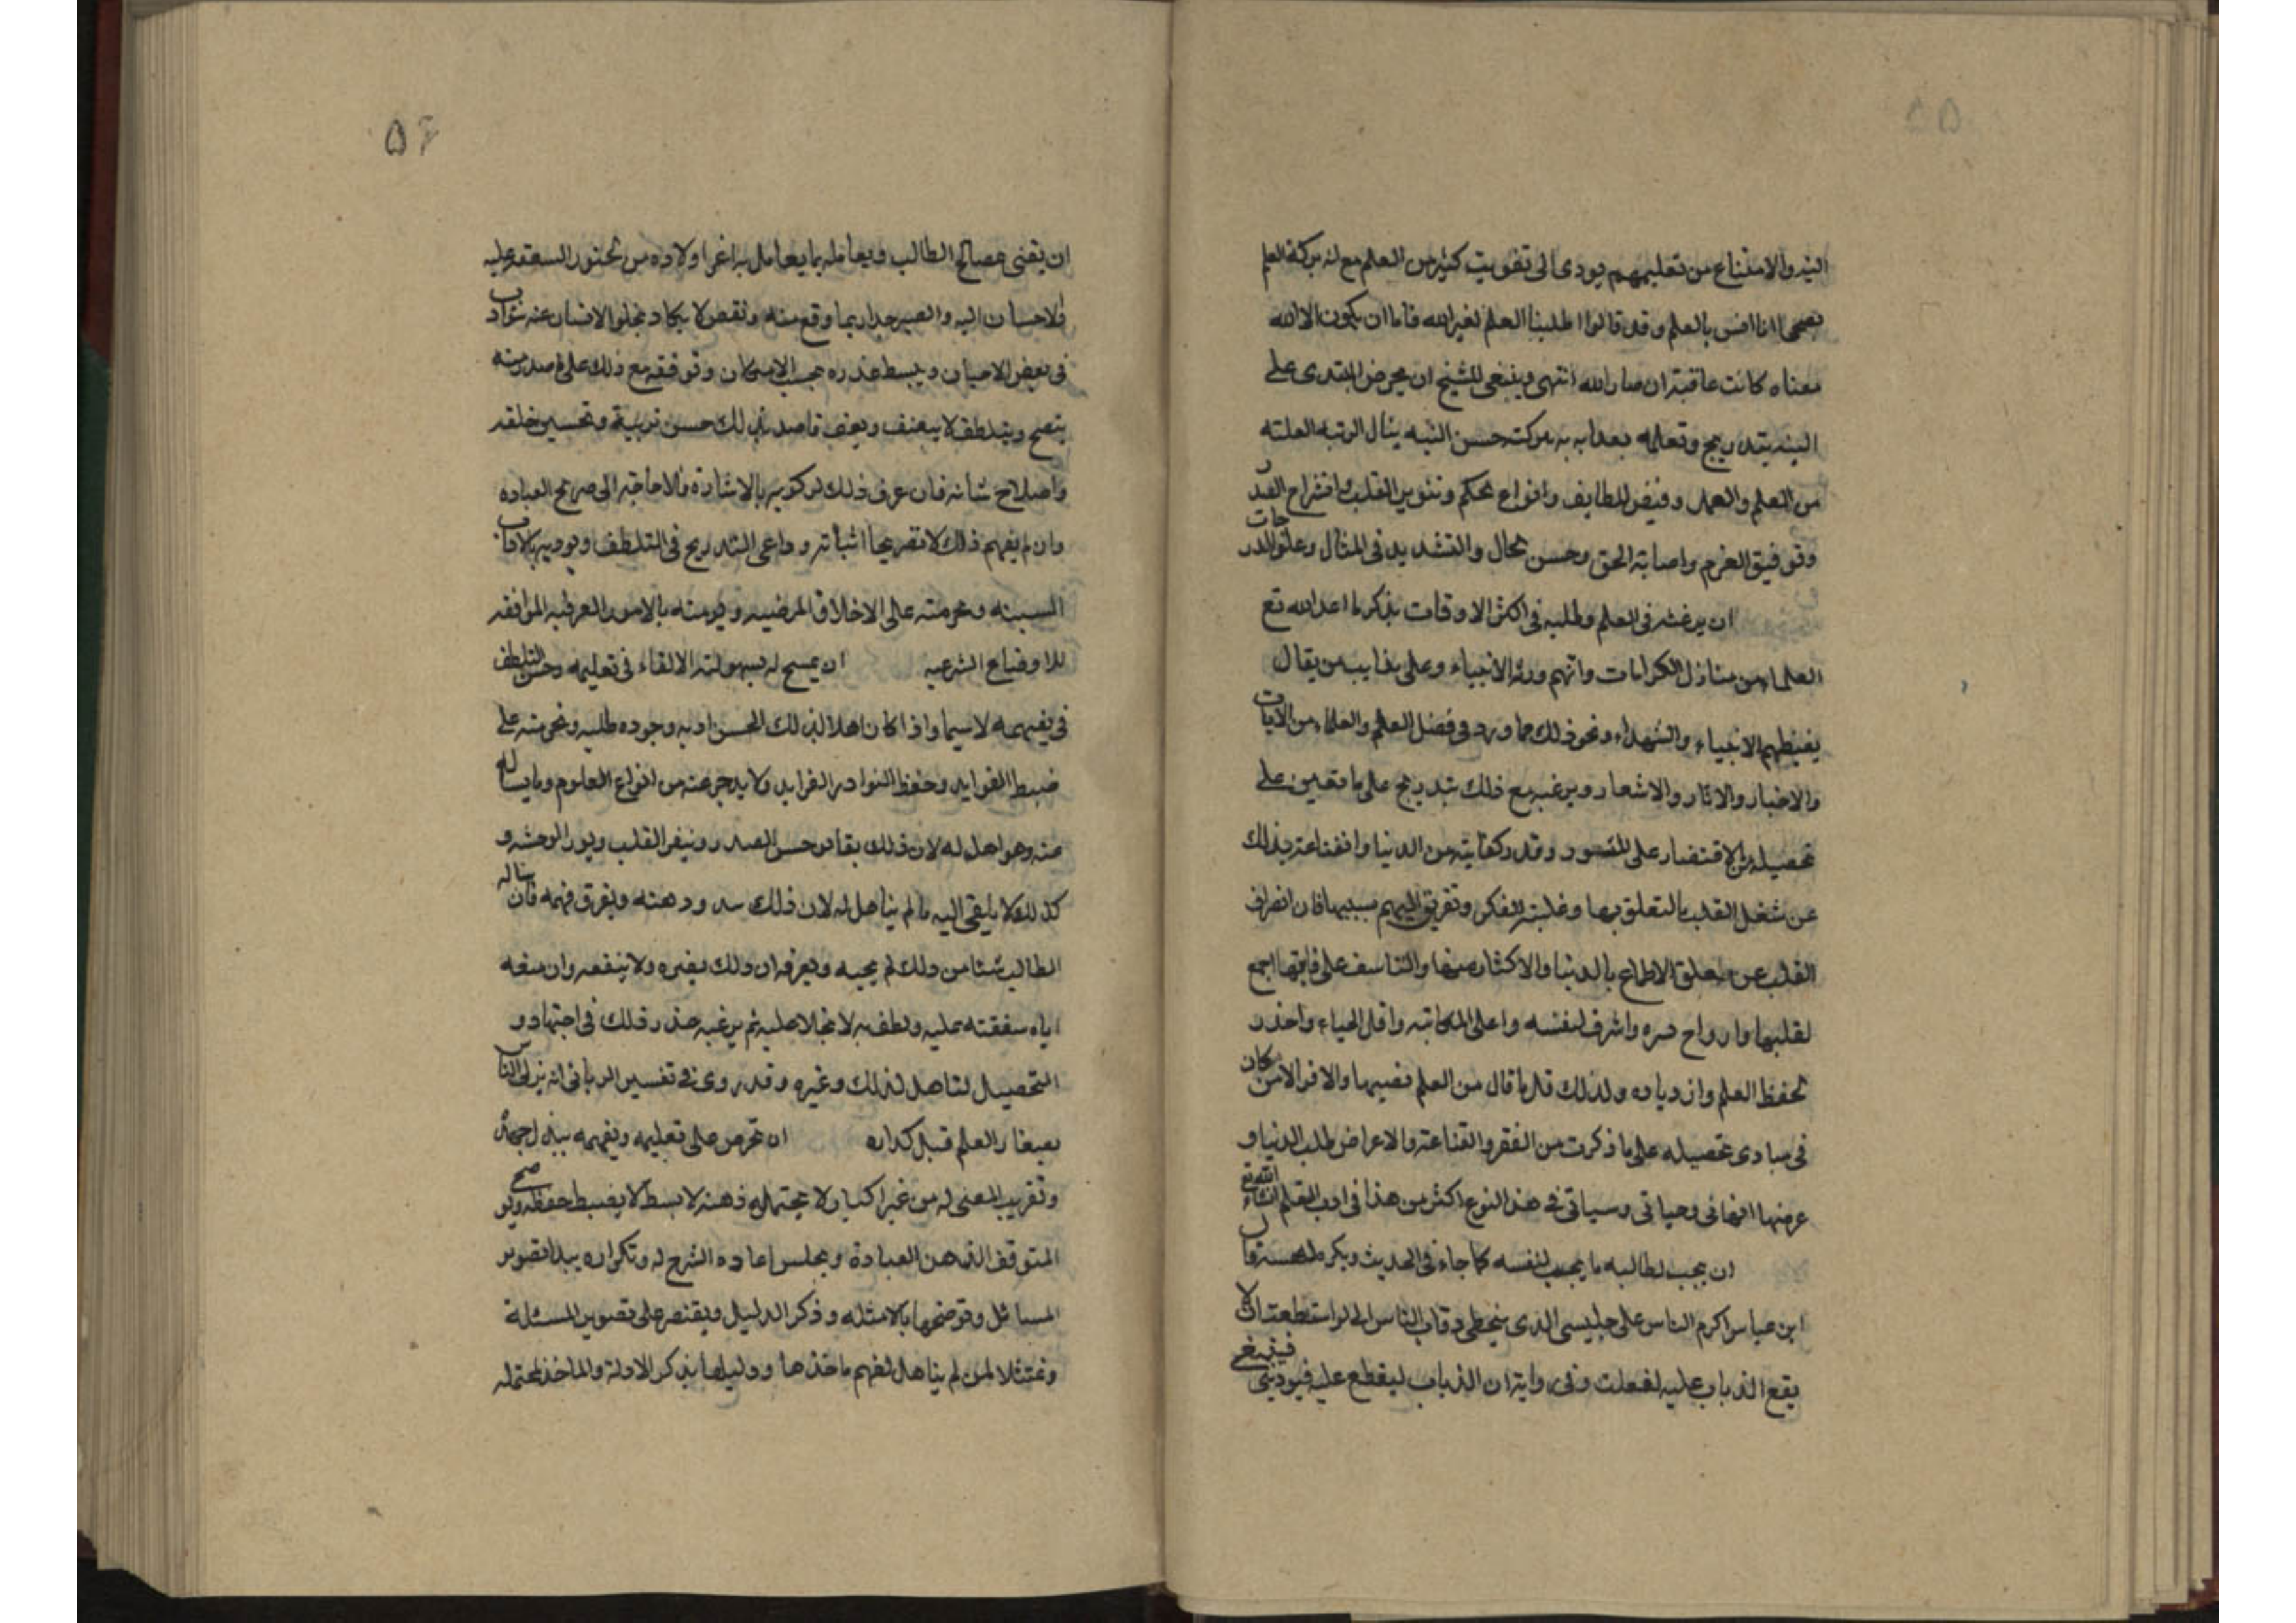 ۵۵
النيه والامتناع من تعليمهم يودى الى تفويت كثير من العلم مع انه بركة العلم
يصحى اذا انس بالعلم وقد قالوا طلبنا العلم لغير الله فاما ان يكون الا الله
معناه كانت عاقبة ان صار لله انتهى وينبغى للشيخ ان يحرض المبتدى على
النيه بتدريج وتعلمه بعد انه ببركة حسن النيه ينال الرتبه العليه
من العلم والعمل وفيض اللطايف وانواع الحكم وتنوير القلب وانشراح الصدر
وتوفيق العزم واصابة الحق وحسن الحال والتشديد فى المثال وعلو الدرجات
ان يرغبه فى العلم وطلبه فى اكثر الاوقات بذكر ما اعد الله تع
العلماء من منازل الكرامات وانهم ورثة الانبياء وعلى منابر من يقال
يغبطهم الانبياء والشهداء ونحو ذلك مما ورد فى فضل العلم والعلماء من الايات
والاخبار والاثار والاشعار ويرغبه مع ذلك بتدريج على ما تعين على
تحصيله من الاقتصار على الميسور وقدر كفايته من الدنيا واقتناعه بذلك
عن شغل القلب بالتعلق بها وغلبة الفكر وتفريق الهم بسببها فان انصراف
القلب عن تعلق الاطماع بالدنيا والاكثار منها والتاسف على فايتها اجمع
لقلبها وارواح سره واشرف لنفسه واعلى المكانته واقل الحياء واجدر
لحفظ العلم وازدياده ولذلك قل ما قال من العلم نصيبا والافر الامن كان
فى مبادى تحصيله على ما ذكرت من الفقر والقناعة والاعراض لطلب الدنيا و
عرضها الفانى وسياتى فى هذا النوع اكثر من هذا فى ادب المتعلم انشاء الله تع
ان يحب لطالبه ما يحب لنفسه كما جاء فى الحديث ويكره قال
ابن عباس اكرم الناس على جليسى الذى يتخطى رقاب الناس الى لو استطعت ان لا
يقع الذباب عليه لفعلت وفى رواية ان الذباب ليقطع عليه فيوذينى فينبغى
۵۶
ان يعتنى بمصالح الطالب ويعامله بما يعامل به اعز اولاده من الشفقة عليه
والاحسان اليه والصبر بما وقع منه ونقص لا يكاد يخلو الانسان عنه
فى بعض الاحيان ويبسط عذره بحسب الامكان وتوقفه مع ذلك على ما صدر منه
بنصح وبتلطف لا بتعنف قاصد بذلك حسن تربيته وتحسين خلقه
واصلاح شانه فان عرف ذلك بالاشارة فلا حاجة الى صريح العباره
وان لم يفهم ذلك الا تصريحا وراعى التدريج فى التلطف ويوديه بالاداب
السنيه ويحرضه على الاخلاق المرضيه ويوصيه بالامور العرفيه الموافقه
للاوضاع الشرعيه ان يسمح له بسهولة الالقاء فى تعليمه وحسن التلطف
فى تفهيمه لاسيما واذا كان اهلا لذلك لحسن ادبه وجوده طلبه ويحرضه على
ضبط الفوايد وحفظ النوادر الفرايد ولا يدخر عنه من انواع العلوم وما يساله
عنه وهو اهل له لان ذلك يوحش الصدر وينفر القلب ويورث الوحشه و
كذلك لا يلقى اليه ما لم يتاهل له لان ذلك وذهنه ويفرق فهمه فان ساله
الطالب شئا من ذلك لم يجبه ويعرفه ان ذلك يضره ولا ينفعه وان منعه
اياه شفقته عليه ولطف به لا بخلا عليه ثم يرغبه عند ذلك فى اجتهاد و
التحصيل لتاهل لذلك وغيره وقد روى فى تفسير الربانى انه يربى الناس
بصغار العلم قبل كباره ان يحرص على تعليمه وتفهيمه ببذل جهده
وتقريب المعنى له من غير اكثار لا يحتمله ذهنه لا بسط لا يضبط حفظه ويوضح
المتوقف الذهن العبادة اعاده الشرح له وتكراره يبدا بتصوير
المسائل وتوضحها بالامثله وذكر الدليل ويقتصر على تصوير المسئلة
وتمثلا لمن لم يتاهل لفهم ماخذها ودليلها بذكر الادلة والماخذ لمحتمله